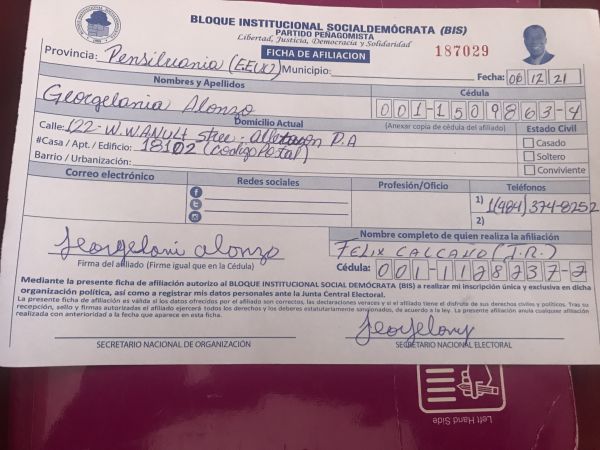 BLOQUE INSTITUCIONAL SOCIALDEMÓCRATA (BIS)
PARTIDO PEÑAGOMISTA
Libertad, Justicia, Democracia y Solidaridad
FICHA DE AFILIACION
187029
Provincia: Pensilvania (EEUU) Municipio: Fecha: 06 12 21
Nombres y Apellidos
Cédula
Georgelania Alonzo
001-1509863-4
Domicilio Actual
(Anexar copia de cédula del afiliado)
Estado Civil
Calle: 122- W. WANULt Stree - P.A
Casado
#Casa / Apt. / Edificio: 18102 (Codigo Postal)
Soltero
Barrio / Urbanización:
Conviviente
Correo electrónico
Redes sociales
Profesión/Oficio
Teléfonos
1) 1(484) 374-8252
2)
Georgelani alonzo
Firma del afiliado (Firme igual que en la Cédula)
Nombre completo de quien realiza la afiliación
FELIX CALCAÑO (J.R.)
Cédula: 001-1128237-2
Mediante la presente ficha de afiliación autorizo al BLOQUE INSTITUCIONAL SOCIAL DEMÓCRATA (BIS) a realizar mi inscripción única y exclusiva en dicha
organización política, así como a registrar mis datos personales ante la Junta Central Electoral.
La presente ficha de afiliación es válida si los datos ofrecidos por el afiliado son correctos, las declaraciones veraces y si el afiliado tiene el disfrute de sus derechos civiles y políticos. Tras su
recepción, sello y firmas autorizadas el afiliado ejercerá todos los derechos y los deberes estatutariamente sancionados, de acuerdo a la ley. La presente afiliación anula cualquier afiliación
realizada con anterioridad a la fecha que aparece en esta ficha.
SECRETARIO NACIONAL DE ORGANIZACIÓN
SECRETARIO NACIONAL ELECTORAL
Left Hand
Side